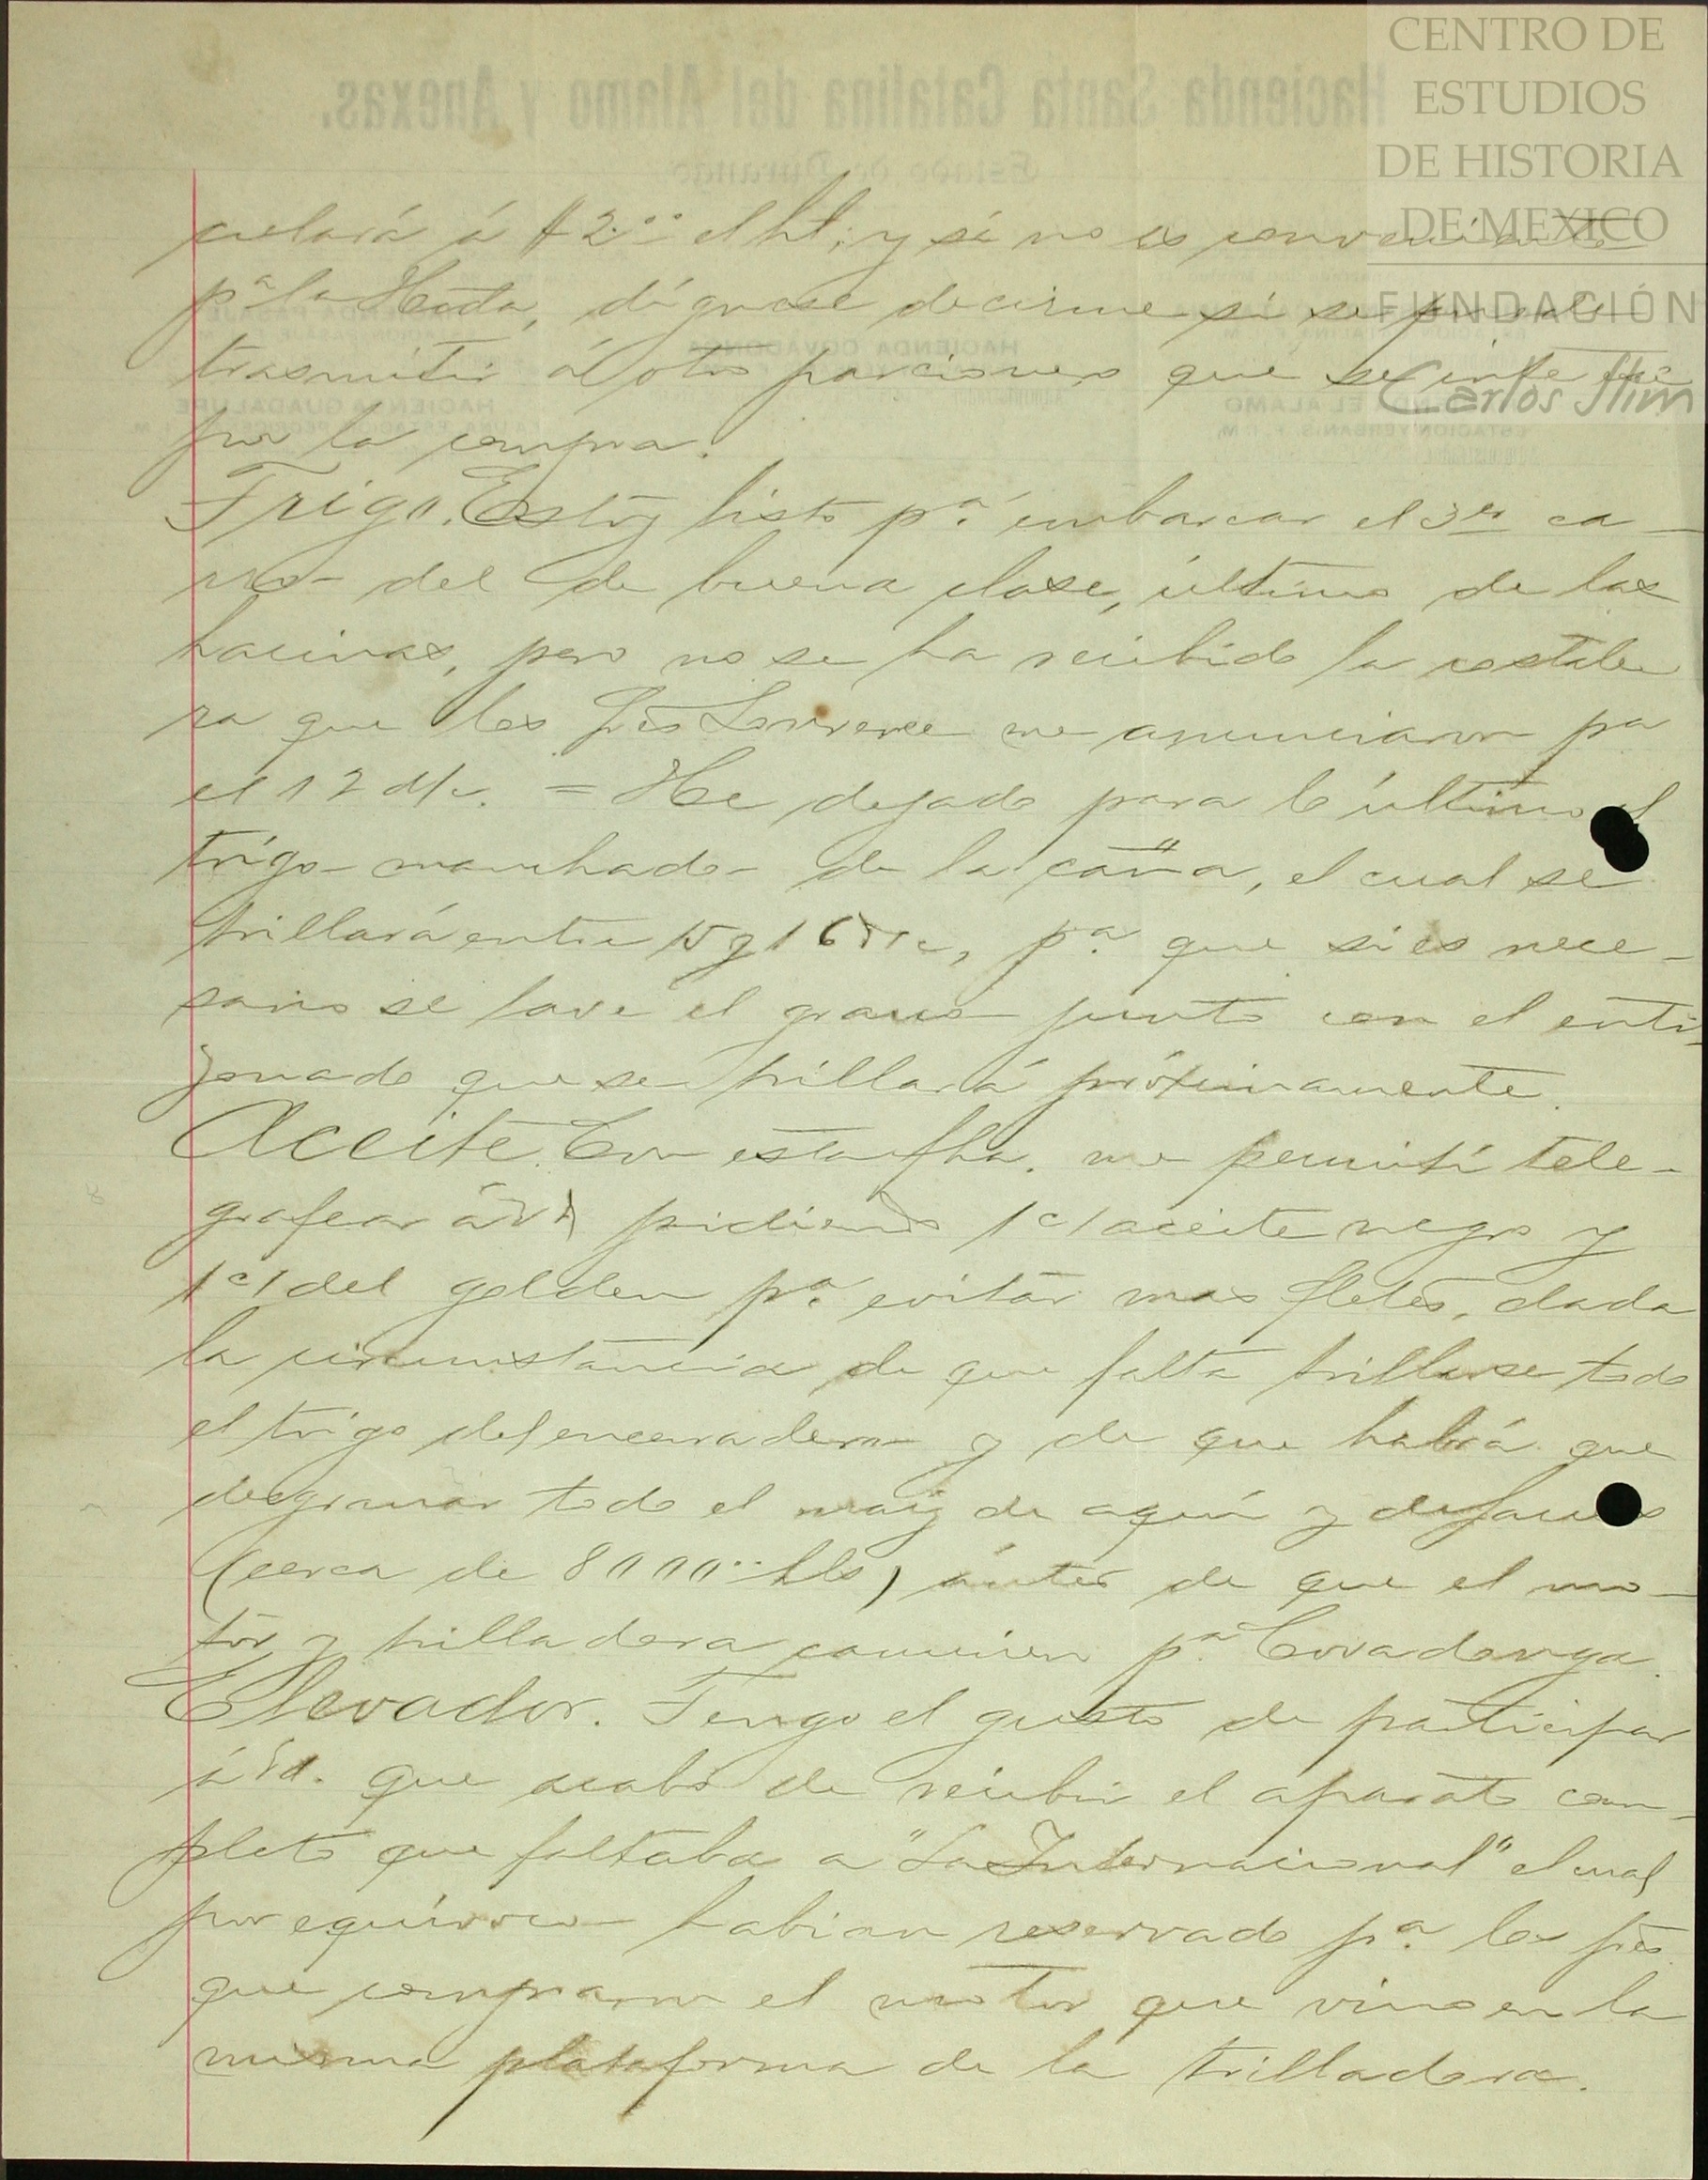 CENTRO DE
ESTUDIOS
DE HISTORIA
DE MEXICO
FUNDACIÓN
Carlos Slim
Hacienda Santa Catalina del Alamo y Anexas.
Estado de Durango
á $2.00 el hl; y si no es conveniente
pª la Hcda, dígnese decirme si se puede
trasmitir á otro parcionero que se interese
por la compra.
Trigo. Estoy listo pª embarcar el 3er ca-
rro del de buena clase, último de las
hacinas, pero no se ha recibido la costale
ra que los Sres me anunciaron pa
el 12 d/c. = He dejado para lo último el
trigo manchado de la caña, el cual se
trillará entre 15 y 16 d/c, pª que si es nece-
sario se lave el grano junto con el enti-
zonado que se trillará próximamente.
Aceite. Con esta fha. me permití tele-
grafear á Vd pidiendo 1 c/ aceite negro y
1 c/ del golden pª evitar mas fletes, dada
la circunstancia de que falta trillarse todo
el trigo del encerradero y de que habrá que
desgranar todo el maiz de aquí y
(cerca de 8000.. hls) ántes de que el mo-
tor y trilladora caminen pª Covadonga.
Elevador. Tengo el gusto de participar
á Vd. que acabo de recibir el aparato com-
pleto que faltaba a "La Internacional" el cual
por equívoco habian reservado pª los Sres
que compraron el motor que vino en la
misma plataforma de la trilladora.